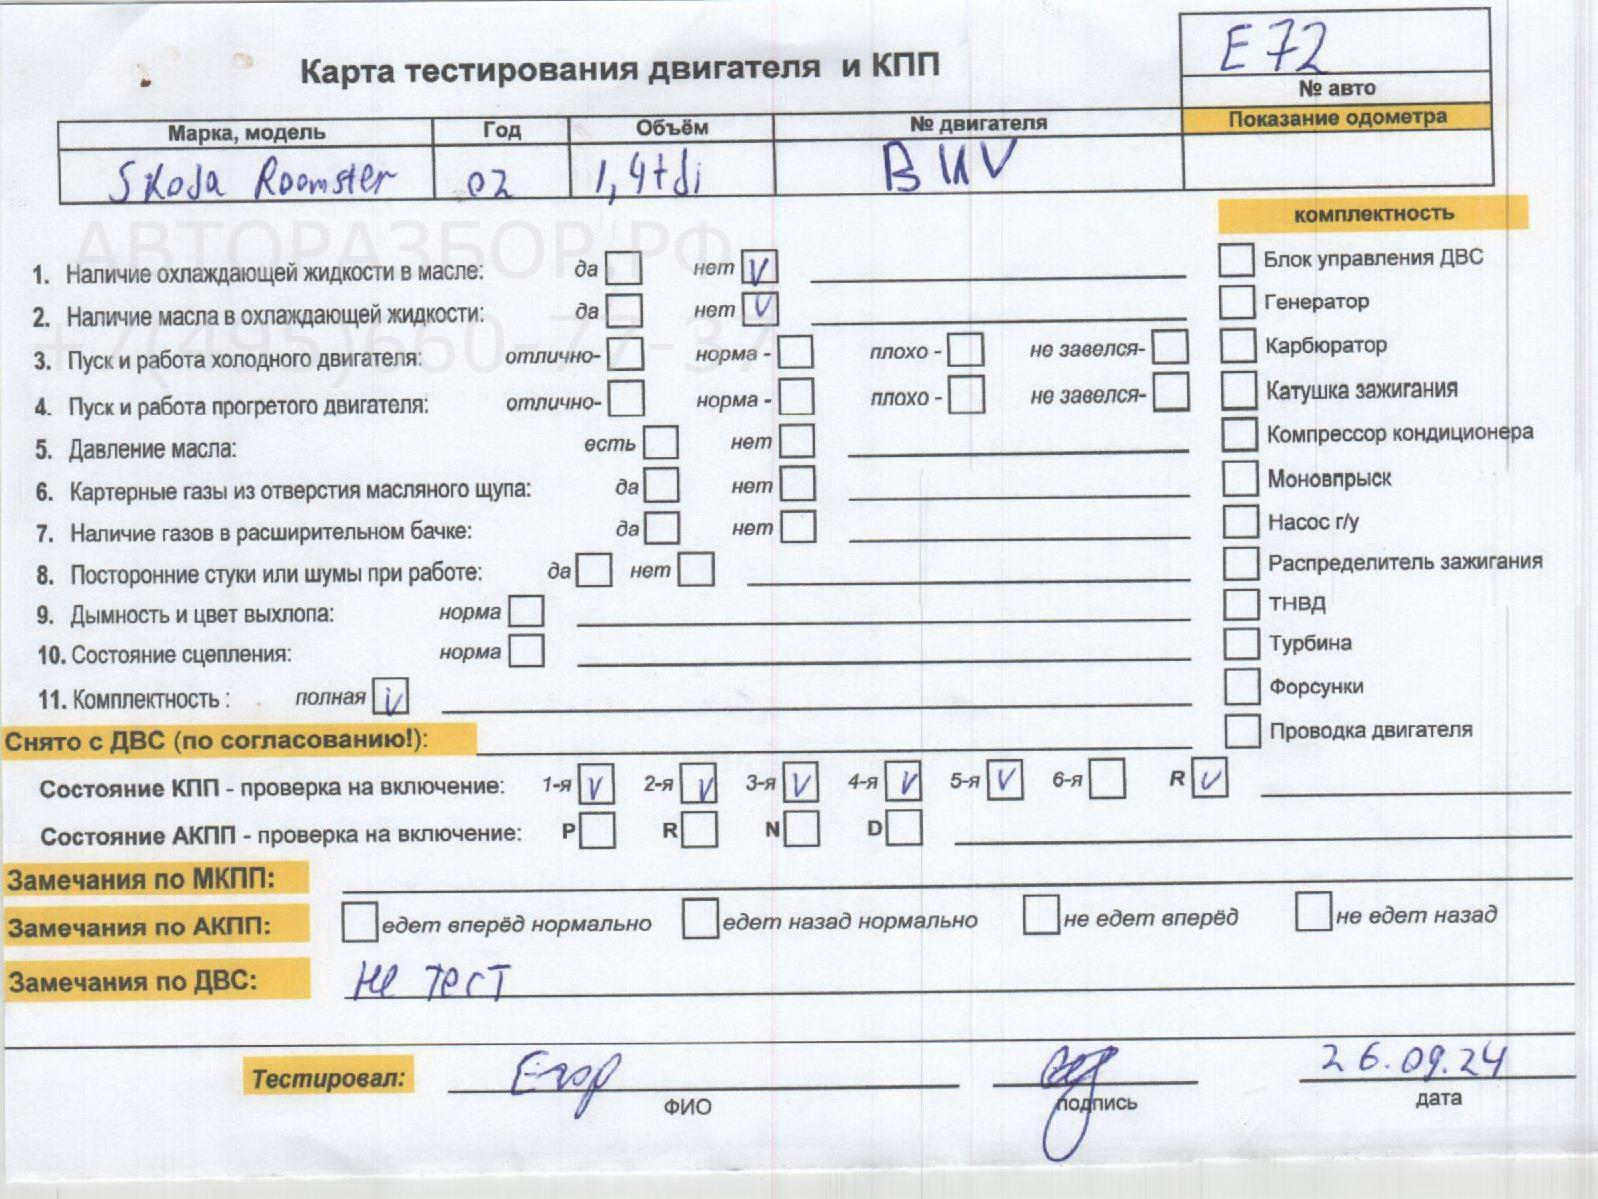 Карта тестирования двигателя и КПП
E72
№ авто
Марка, модель Год Объём № двигателя Показание одометра
Skoda Roomster 02 1,4tdi BNV
АВТОРАЗБОР.РФ
+7(495)660-77-37
комплектность
1. Наличие охлаждающей жидкости в масле: да нет V
2. Наличие масла в охлаждающей жидкости: да нет V
3. Пуск и работа холодного двигателя: отлично- норма - плохо - не завелся-
4. Пуск и работа прогретого двигателя: отлично- норма - плохо - не завелся-
5. Давление масла: есть нет
6. Картерные газы из отверстия масляного щупа: да нет
7. Наличие газов в расширительном бачке: да нет
8. Посторонние стуки или шумы при работе: да нет
9. Дымность и цвет выхлопа: норма
10. Состояние сцепления: норма
11. Комплектность : полная V
Блок управления ДВС
Генератор
Карбюратор
Катушка зажигания
Компрессор кондиционера
Моновпрыск
Насос г/у
Распределитель зажигания
ТНВД
Турбина
Форсунки
Проводка двигателя
Снято с ДВС (по согласованию!):
Состояние КПП - проверка на включение: 1-я V 2-я V 3-я V 4-я V 5-я V 6-я R V
Состояние АКПП - проверка на включение: P R N D
Замечания по МКПП:
Замечания по АКПП: едет вперёд нормально едет назад нормально не едет вперёд не едет назад
Замечания по ДВС: не тест
Тестировал: Егор 26.09.24
ФИО подпись дата